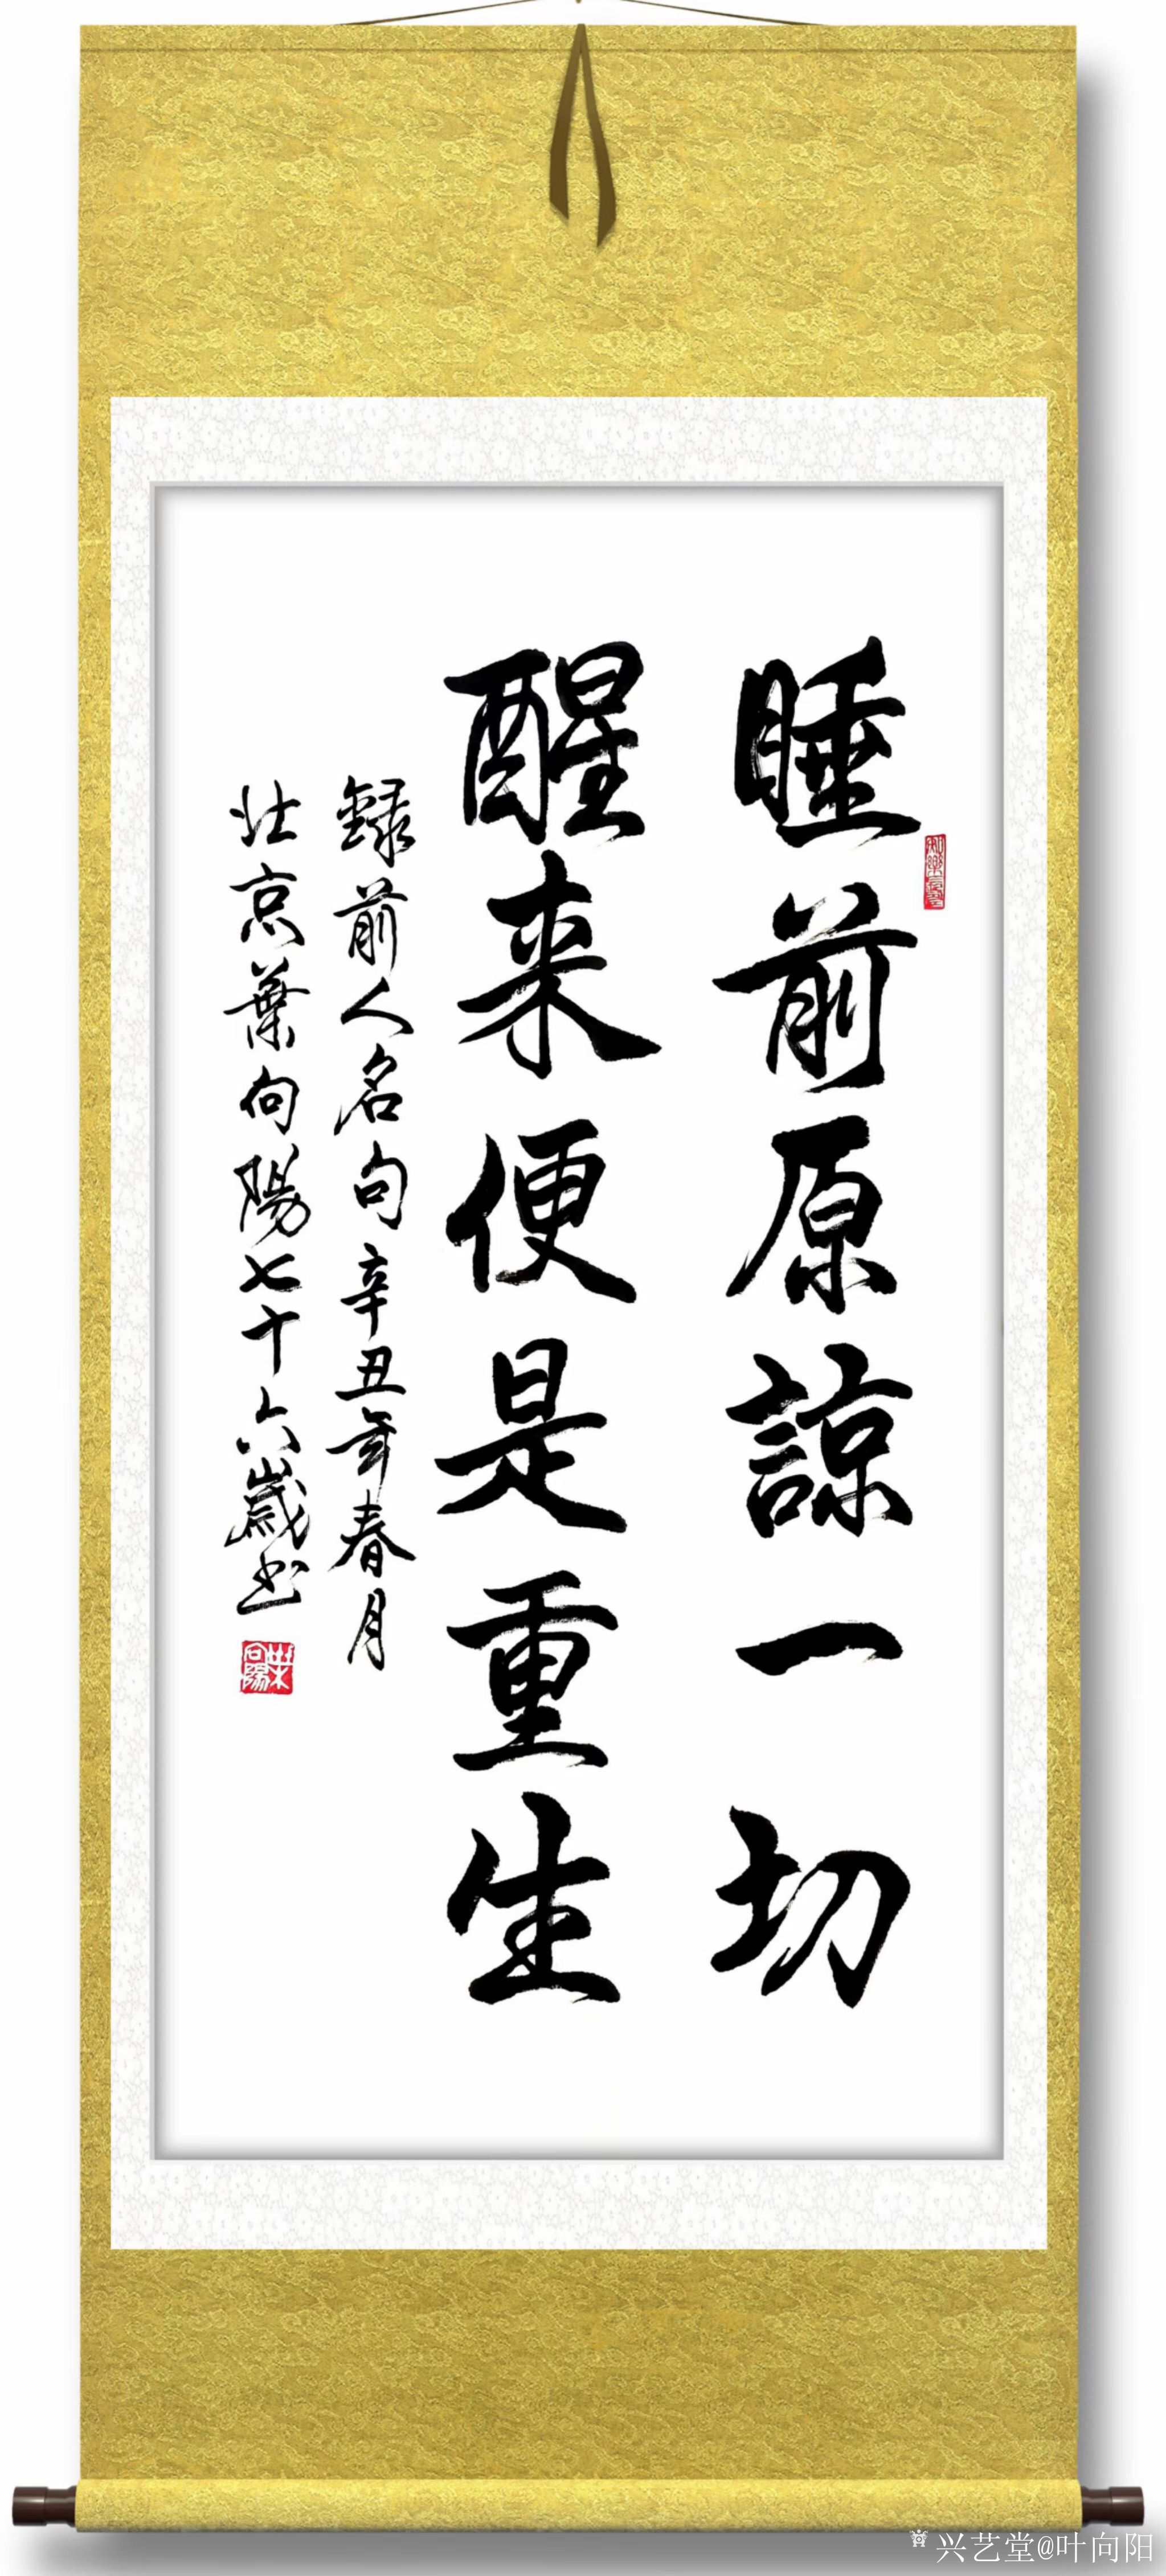 睡前原諒一切
醒来便是重生
録前人名句辛丑年春月
北京葉向陽七十六歲书
葉向陽
兴艺堂@叶向阳